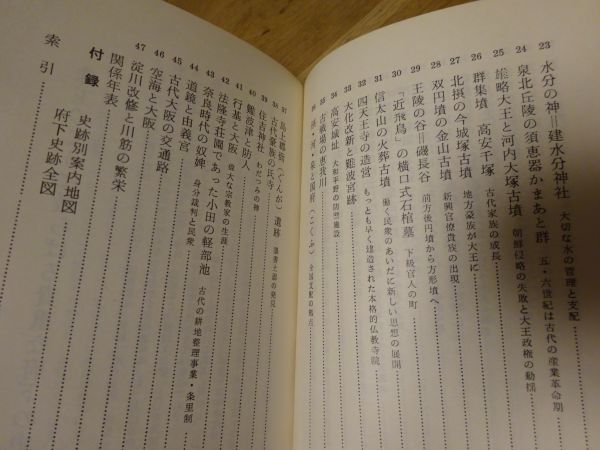 23 水分の神＝建水分神社 大切な水の管理と支配
24 泉北丘陵の須恵器かまあと群 五・六世紀は古代の産業革命期
25 雄略大王と河内大塚古墳 朝鮮侵略の失敗と大王政権の動揺
26 群集墳 高安千塚 古代家族の成長
27 北摂の今城塚古墳 地方豪族が大王に
28 双円墳の金山古墳 新興官僚貴族の出現
29 王陵の谷＝磯長谷 前方後円墳から方形墳へ
30 「近飛鳥」の横口式石棺墓 下級官人の町
31 信太山の火葬古墳 働く民衆のあいだに新しい思想の展開
32 四天王寺の造営 もっとも早く建造された本格的仏教寺院
33 大化改新と難波宮跡
34 高安城址 大和平野の防禦施設
35 古戦場の恵我川
36 ・河・泉と国府（こくふ） 全国支配の拠点
37 島上郡衙（ぐんが）遺跡 墨書土器の発見
38 古代豪族の氏寺
39 住吉神社 わだつみの神
40 難波津と防人
41 行基と大阪 偉大な宗教家の生涯
42 法隆寺荘園であった小田の軽部池 古代の耕地整理事業・条里制
43 奈良時代の奴婢 身分裁判と民衆
44 道鏡と由義宮
45 古代大阪の交通路
46 空海と大阪
47 淀川改修と川筋の繁栄
関係年表
付録 史跡別案内地図
府下史跡全図
索引